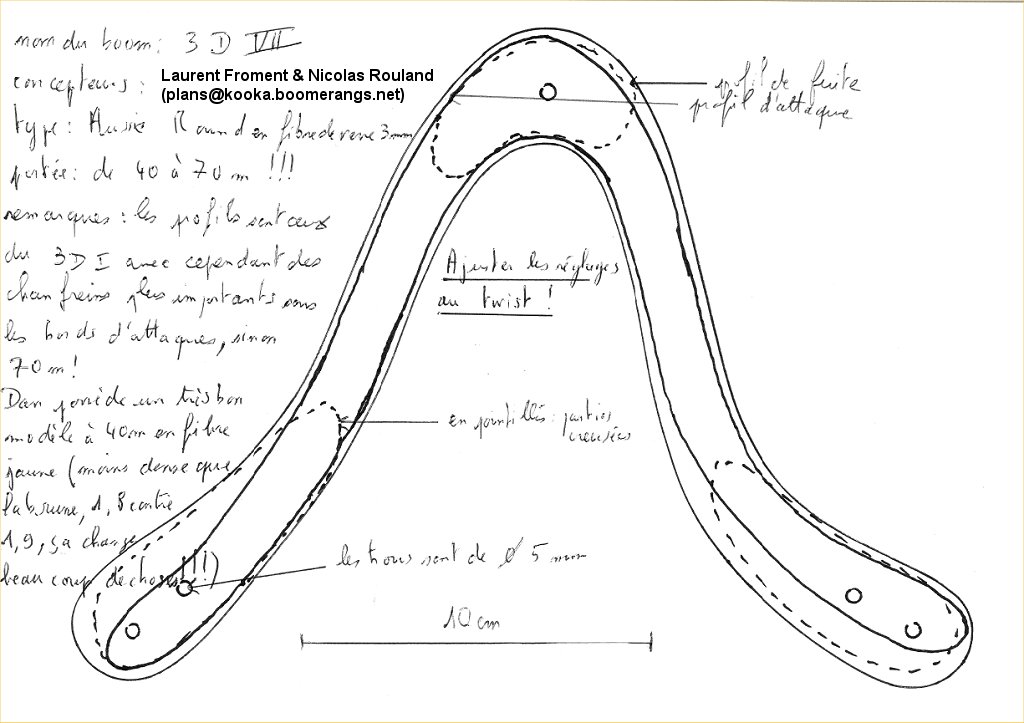 nom du boom : 3 D VII
concepteurs :
Laurent Froment & Nicolas Rouland
(plans@kooka.boomerangs.net)
type : Aussie Round en fibre de verre 3mm
portée : de 40 à 70 m !!!
remarques : les profils sont ceux
du 3D I avec cependant des
chanfreins plus importants sous
les bords d'attaques, sinon
70 m !
Dan possède un très bon
modèle à 40m en fibre
jaune (moins dense que
la brune, 1,8 contre
1,9, ça change
beaucoup de choses !!!)
profil de fuite
profil d'attaque
Ajuster les réglages
au twist !
en pointillés : parties
creusées
les trous sont de Ø 5 mm
10 cm